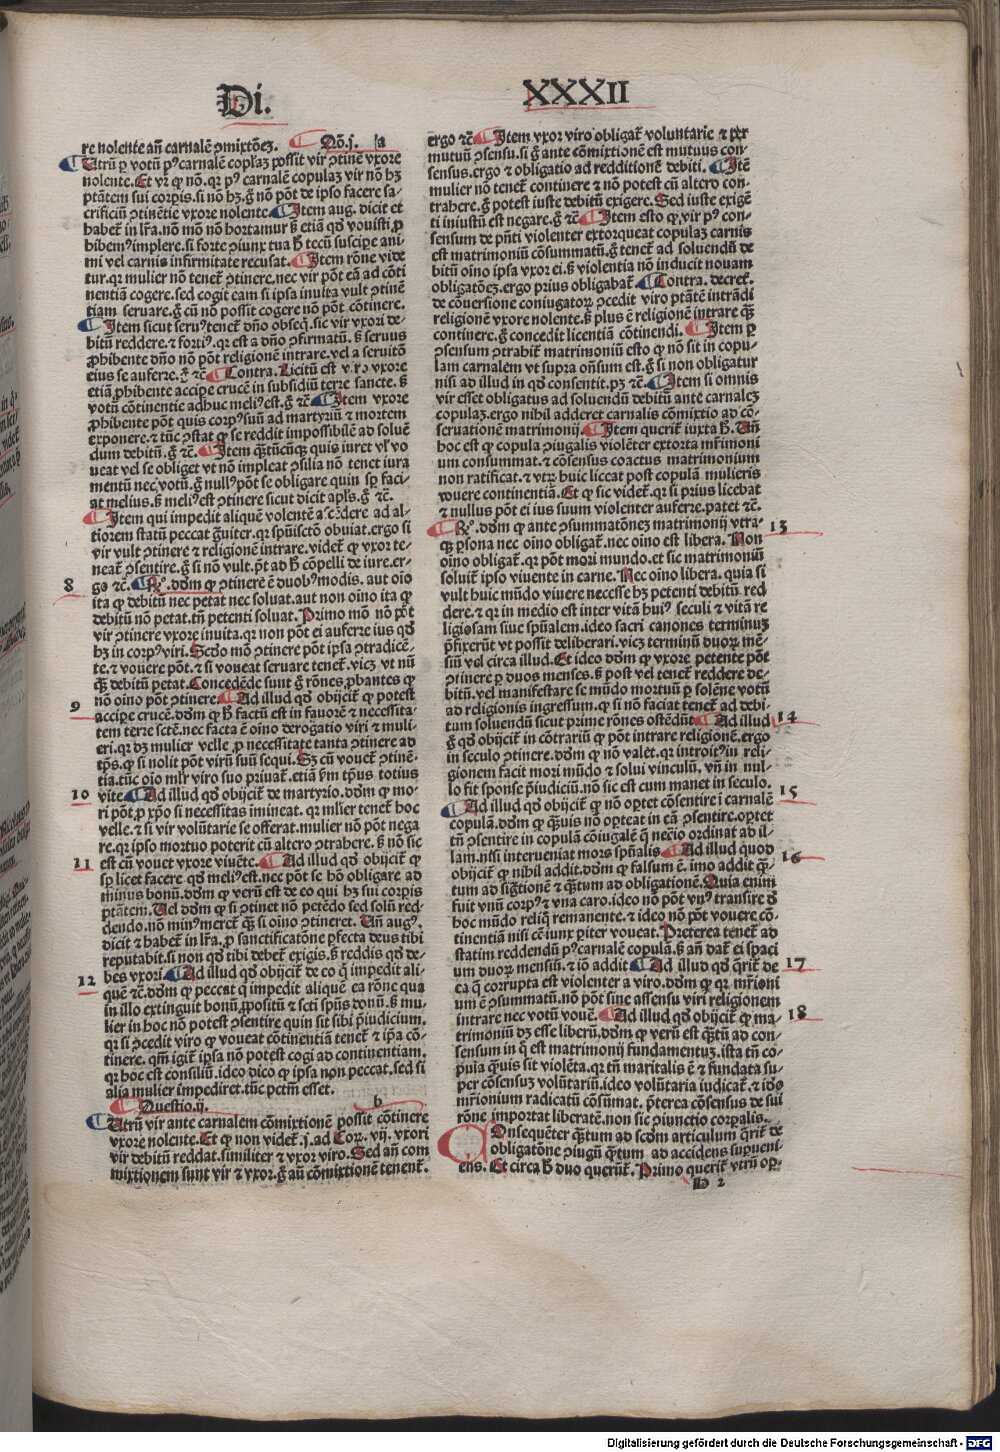 Di. XXXII
re nolente añ carnalē ꝯmixtōeꝫ. Qō.j. a
Utrū ꝑ votū pꝰ carnalē copl'aꝫ possit vir ꝯtinē vxore
nolente. Et vr̄ ꝙ nō. qꝛ pꝰ carnalē copulaꝫ vir nō hꝫ
ptātem sui corpꝭis. si nō hꝫ. g̊ nō pōt de ipso facere sa-
crificiū ꝯtinētie vxore nolente. Itē aug. dicit et
habet̄ in lr̄a. nō mō nō hortamur s̄ etiā qd̓ vouisti ꝓ
hibem̓ implere. si forte ꝯiunx tua h̓ tecū suscipe ani-
mi vel carnis infirmitate recusat. Itē rōne vide
tur. qꝛ mulier nō tenet̄ ꝯtinere. nec vir pōt eā ad cōti
nentiā cogere. sed cogit eam si ipsa inuita vult ꝯtinē
tiam seruare. g̊ cū nō possit cogere nō pōt cōtinere.
Itē sicut seruꝰ tenet̄ dn̄o obseq̄. sic vir vxori de-
bitū reddere. ⁊ fortiꝰ. qꝛ est a dn̄o ꝯfirmatū. s̄ seruus
ꝓhibente dn̄o nō pōt religionē intrare. vel a seruitō
eius se auferre. g̊ ⁊c̄ Contra. Licitū est viro vxore
etiā ꝓhibente accipe crucē in subsidiū terre sancte. s̄
votū cōtinentie adhuc meliꝰ est. g̊ ⁊c̄ Itē vxore
ꝓhibente pōt quis corpꝰ suū ad martyriū ⁊ mortem
exponere. ⁊ tūc ꝯstat ꝙ se reddit impossibilē ad soluē
dum debitū. g̊ ⁊c̄. Itē q̄ntūcūqꝫ quis iuret vl̓ vo
ueat vel se obliget vt nō impleat ꝯsilia nō tenet iura
mentū nec votū. g̊ nullꝰ pōt se obligare quin sp̄ faci-
at melius. s̄ meliꝰ est ꝯtinere sicut dicit apl̓s. g̊ ⁊c̄.
Itē qui impedit aliquē volentē ascēdere ad al-
tiorem statū peccat g̊uiter. qꝛ spūiscto obuiat. ergo si
vir vult ꝯtinere ⁊ religionē intrare. videt̄ ꝙ vxor te-
neat̄ ꝯsentire. g̊ si nō vult. pt̄ ad h̓ cōpelli de iure. er-
8 go ⁊c̄. Rº. dd̄m ꝙ ꝯtinere ē duobꝰ modis. aut oīo
ita ꝙ debitū nec petat nec soluat. aut non oīno ita ꝙ
debitū nō petat. tn̄ petenti soluat. Primo mō nō pōt
vir ꝯtinere vxore inuita. qꝛ non pōt ei auferre ius qd̓
hꝫ in corpꝰ viri. Scd̓o mō ꝯtinere pōt ipsa ꝯtradicē-
te. ⁊ vouere pōt. ⁊ si voueat seruare tenet̄. vicꝫ vt nū
qꝫ debitū petat. Concedēde sunt g̊ rōnes ꝓbantes ꝙ
9 nō oīno pōt ꝯtinere. Ad illud qd̓ obijcit̄ ꝙ potest
accipe crucē. dd̄m ꝙ h̓ factū est in fauorē ⁊ necessita-
tem terre sctē. nec facta ē oīno derogatio viri ⁊ muli-
eri. qꝛ dꝫ mulier velle ꝓ necessitate tanta ꝯtinere ad
tp̄s. ꝙ si nolit pōt virū suū sequi. Sꝫ cū vouet ꝯtinē-
tia. tūc oīo ml̓r viro suo priuat̄. etiā ꝑm tp̄us totius
10 vite. Ad illud qd̓ obijcit̄ de martyrio. dd̄m ꝙ mo-
ri pōt ꝓ xp̄o si necessitas imineat. qꝛ ml̓ier tenet̄ hoc
velle. ⁊ si vir volūtarie se offerat. mulier nō pōt nega
re. qꝛ ipso mortuo poterit cū altero ꝯtrahere. s̄ nō sic
11 est cū vouet vxore viuēte. Ad illud qd̓ obijcit̄ ꝙ
sp̄ licet facere qd̓ meliꝰ est. nec pōt se hō obligare ad
minus bonū. dd̄m ꝙ verū est de eo qui hꝫ sui corpꝭis
ptātem. Uel dd̄m ꝙ si ꝯtinet nō petēdo sed solū red-
dendo. nō minꝰ meret̄ qꝫ si oīno ꝯtineret. Un̄ augꝰ.
dicit ⁊ habet̄ in lr̄a. ꝓ sanctificatōne ꝑfecta deus tibi
reputabit. si non qd̓ tibi debet̄ exigis. s̄ reddis qd̓ de-
12 bes vxori. Ad illud qd̓ obijcit̄ de eo q̄ impedit ali-
quē ⁊c̄. dd̄m ꝙ peccat q̄ impedit aliquē ea rōne qua
in illo extinguit bonū ꝓpositū ⁊ scti spūs donū. s̄ mu-
lier in hoc nō potest ꝯsentire quin sit sibi p̄iudicium.
qꝛ si ꝯcedit viro ꝙ voueat cōtinentiā tenet̄ ⁊ ip̄a cō-
tinere. qm̄ igit̄ ipsa nō potest cogi ad continentiam.
qꝛ hoc est consiliū. ideo dico ꝙ ipsa non peccat. sed si
alia mulier impediret. tūc petm̄ esset.
Questio.ij. b
Utrū vir ante carnalem cōmixtionē possit cōtinere
vxore nolente. Et ꝙ non videt̄. j. ad Cor. vij. vxori
vir debitū reddat. similiter ⁊ vxor viro. Sed añ com
mixtionem sunt vir ⁊ vxor. g̊ añ cōmixtionē tenent̄.
ergo ⁊c̄. Itē vxor viro obligat̄ voluntarie ⁊ per
mutuū ꝯsensu. si g̊ ante cōmixtionē est mutuus con-
sensus. ergo ⁊ obligatio ad redditionē debiti. Itē
mulier nō tenet̄ continere ⁊ nō potest cū altero con-
trahere. g̊ potest iuste debitū exigere. Sed iuste exigē
ti iniustū est negare. g̊ ⁊c̄ Itē esto ꝙ vir pꝰ con-
sensum de pn̄ti violenter extorqueat copulaꝫ carnis
est matrimoniū cōsummatū. g̊ tenet̄ ad soluendū de
bitū oīno ipsa vxor ei. s̄ violentia nō inducit nouam
obligatōeꝫ. ergo prius obligabat̄. Contra. decret̄.
de cōuersione coniugatoꝝ ꝯcedit viro ptātē intrādi
religionē vxore nolente. s̄ plus ē religionē intrare qꝫ
continere. g̊ concedit licentiā cōtinendi. Itē ꝑ
ꝯsensum ꝯtrahit̄ matrimoniū esto ꝙ nō sit in copu-
lam carnalem vt supra oñsum est. g̊ si non obligatur
nisi ad illud in qd̓ consentit. pꝫ ⁊c̄. Itē si omnis
vir esset obligatus ad soluendū debitū ante carnaleꝫ
copulaꝫ. ergo nihil adderet carnalis cōmixtio ad cō-
seruationē matrimonij. Itē querit̄ iuxta h̓. Un̄
hoc est ꝙ copula ꝯiugalis violēter extorta mr̄imoni
um consummat. ⁊ cōsensus coactus matrimonium
non ratificat. ⁊ vtꝝ huic liceat post copulā mulieris
vouere continentiā. Et ꝙ sic videt̄. qꝛ si prius licebat
⁊ nullus pōt ei ius suum violenter auferre. patet ⁊c̄.
Rº. dd̄m ꝙ ante ꝯsummatōneꝫ matrimonij vtra- 13
qꝫ ꝑsona nec oīno obligat̄. nec oīno est libera. Non
oīno obligat̄. qꝛ pōt mori mundo. et sic matrimoniū
soluit̄ ipso viuente in carne. Nec oīno libera. quia si
vult huic mūdo viuere necesse hꝫ petenti debitū red
dere. ⁊ qꝛ in medio est inter vitā huiꝰ seculi ⁊ vitā re
ligiosam siue spūalem. ideo sacri canones terminuꝫ
p̄fixerūt vt possit deliberari. vicꝫ terminū duoꝝ mē-
siū vel circa illud. Et ideo dd̄m ꝙ vxore petente pōt
ꝯtinere ꝑ duos menses. s̄ post vel tenet̄ reddere de-
bitū. vel manifestare se mūdo mortuū ꝑ solēne votū
ad religionis ingressum. ꝙ si nō faciat tenet̄ ad debi-
tum soluendū sicut prime rōnes ostēdūt Ad illud 14
g̊ qd̓ obijcit̄ in cōtrariū ꝙ pōt intrare religionē. ergo
in seculo ꝯtinere. dd̄m ꝙ nō valet. qꝛ introitꝰ in reli-
gionem facit mori mūdo ⁊ solui vinculū. vn̄ in nul-
lo fit sponse p̄iudiciū. nō sic est cum manet in seculo.
Ad illud qd̓ obijcit̄ ꝙ nō oꝑtet cōsentire i carnalē 15
copulā. dd̄m ꝙ qꝫuis nō oꝑteat in eā ꝯsentire. oꝑtet
tn̄ ꝯsentire in copulā cōiugalē q̄ nec̓io ordinat̄ ad il-
lam. nisi interueniat mors spūalis. Ad illud quod 16
obijcit̄ ꝙ nihil addit. dd̄m ꝙ falsum ē. imo addit q̄n-
tum ad sig̓tionē ⁊ q̄ntum ad obligationē. Quia enim
fuit vnū corpꝰ ⁊ vna caro. ideo nō pōt vnꝰ transire d̓
hoc mūdo reliq̄ remanente. ⁊ ideo nō pōt vouere cō-
tinentiā nisi cē iunx ꝑiter voueat. Preterea tenet̄ ad
statim reddendū pꝰ carnalē copulā. s̄ añ dat̄ ei spaci
um duoꝝ mensiū. ⁊ iō addit Ad illud qd̓ q̄rit̄ de 17
ea q̄ corrupta est violenter a viro. dd̄m ꝙ qꝛ mr̄ioni
um ē ꝯsummatū. nō pōt sine assensu viri religionem
intrare nec votū vouē. Ad illud qd̓ obijcit̄ ꝙ ma- 18
trimoniū dꝫ esse liberū. dd̄m ꝙ verū est q̄ntū ad con-
sensum in q̄ est matrimonij fundamentuꝫ. ista tn̄ co-
pula q̄uis sit violēta. qꝛ tn̄ maritalis ē ⁊ fundata su-
per cōsensuꝫ volūtariū. ideo volūtaria iudicat̄. ⁊ ido
mr̄ionium radicatū cōsūmat. p̄terea cōsensus de sui
rōne importat libertatē. non sic ꝯiunctio corꝑalis.
Consequēter q̄ntum ad scd̄m articulum q̄rit̄ de
obligatōne ꝯiugū q̄ntum ad accidens superueni-
ens. Et circa h̓ duo querunt̄. Primo querit̄ vtrū oꝑ-
H 2
Digitalisierung gefördert durch die Deutsche Forschungsgemeinschaft - DFG